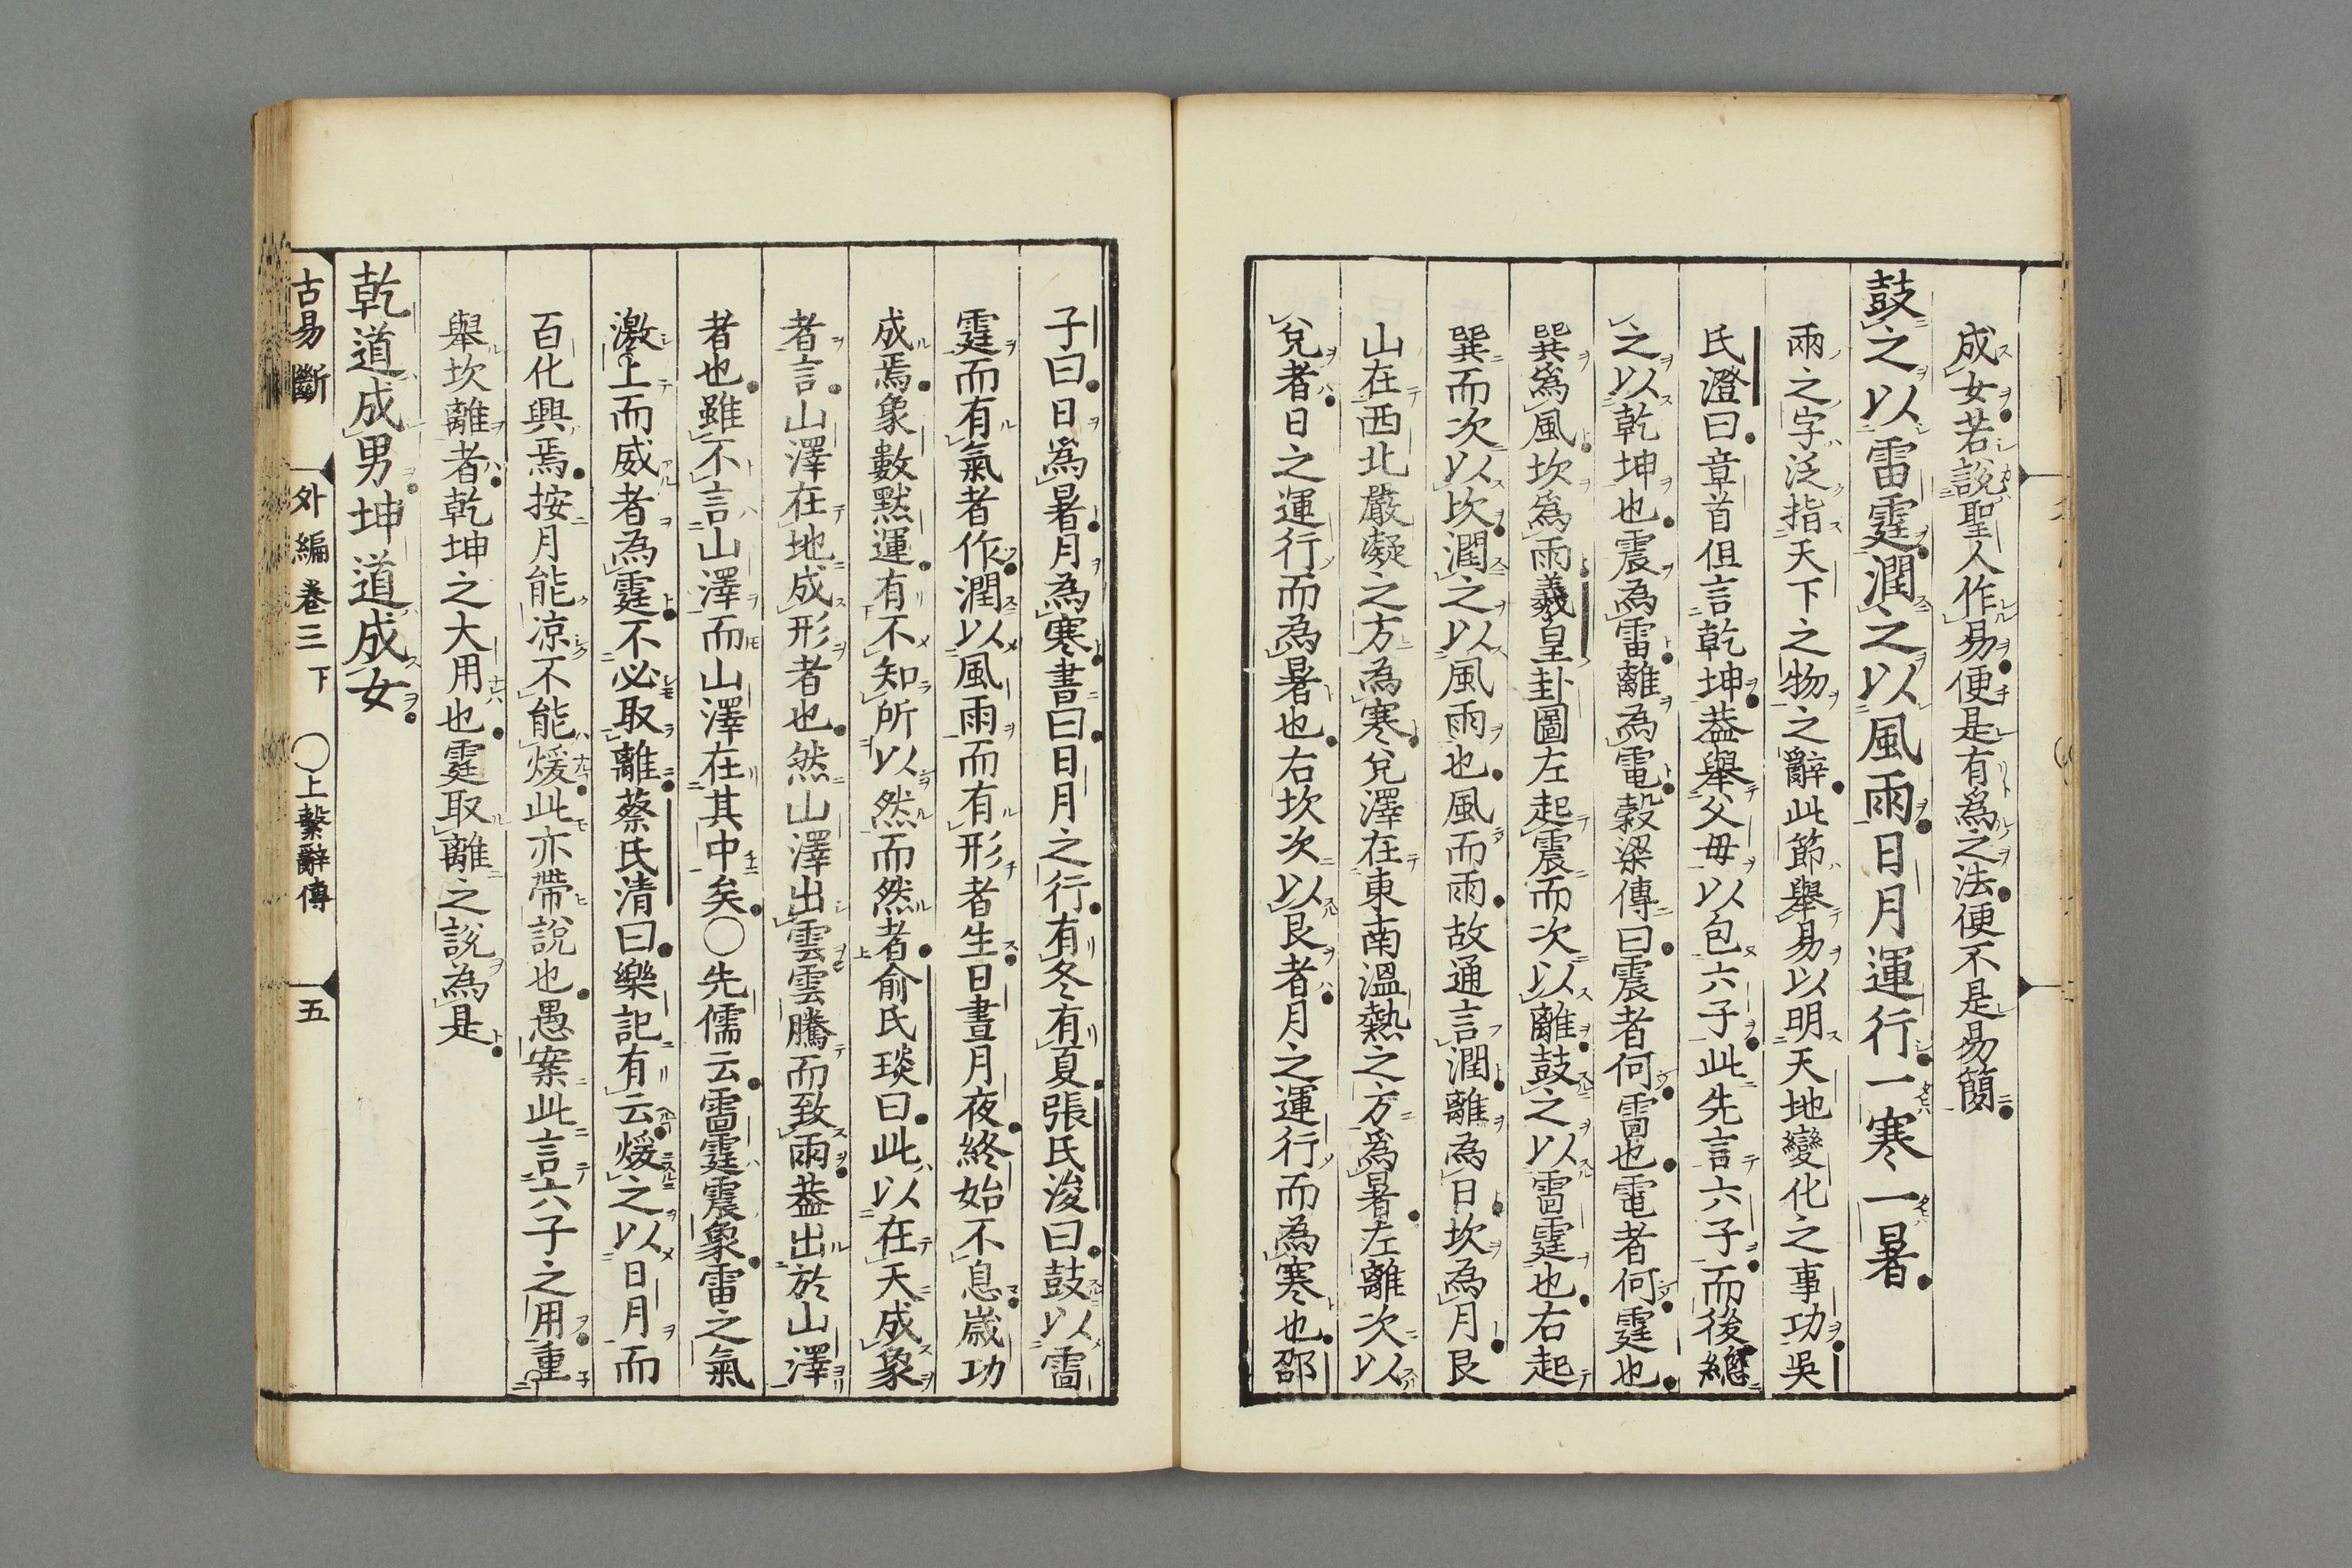 成女若說聖人作易便是有爲之法便不是易簡
鼓之以雷霆潤之以風雨日月運行一寒一暑
兩之字泛指天下之物之辭此節舉易以明天地變化之事功吳
氏澄曰章首但言乾坤葢舉父母以包六子此先言六子而後總
之以乾坤也震為雷離為電穀梁傳曰震者何雷也電者何霆也
巽爲風坎爲雨羲皇卦圖左起震而次以離鼓之以雷霆也右起
巽而次以坎潤之以風雨也風而雨故通言潤離為日坎為月艮
山在西北嚴凝之方為寒兌澤在東南溫熱之方爲暑左離次以
兌者日之運行而為暑也右坎次以艮者月之運行而為寒也邵
子曰日爲暑月為寒書曰日月之行有冬有夏張氏浚曰鼓以雷
霆而有氣者作潤以風雨而有形者生日晝月夜終始不息歲功
成焉象數默運有不知所以然而然者俞氏琰曰此以在天成象
者言山澤在地成形者也然山澤出雲雲騰而致雨葢出於山澤
者也雖不言山澤而山澤在其中矣〇先儒云雷霆震象雷之氣
激上而威者為霆不必取離蔡氏清曰樂記有云煖之以日月而
百化興焉按月能凉不能煖此亦帶說也愚案此言六子之用重
舉坎離者乾坤之大用也霆取離之說為是
乾道成男坤道成女
古易斷 外編 卷三 下 〇上繫辭傳 五